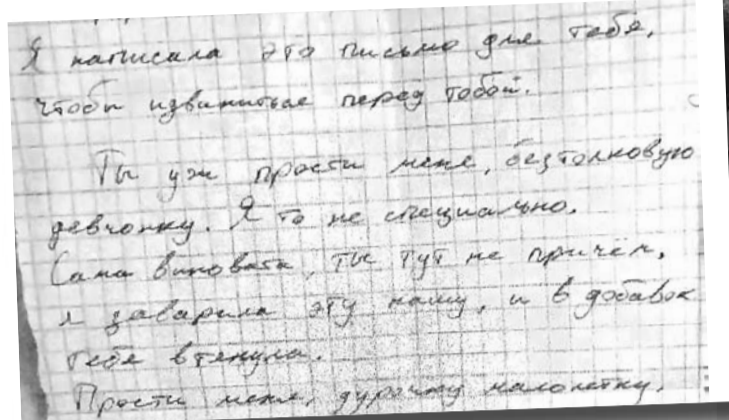 Я написала это письмо для тебя,
чтобы извиниться перед тобой.
Ты уж прости меня, безтолковую
девчонку. Я то не специально.
Сама виновата, ты тут не причём,
я заварила эту кашу, и в добавок
тебя втянула.
Прости меня, дурочку малолетку,